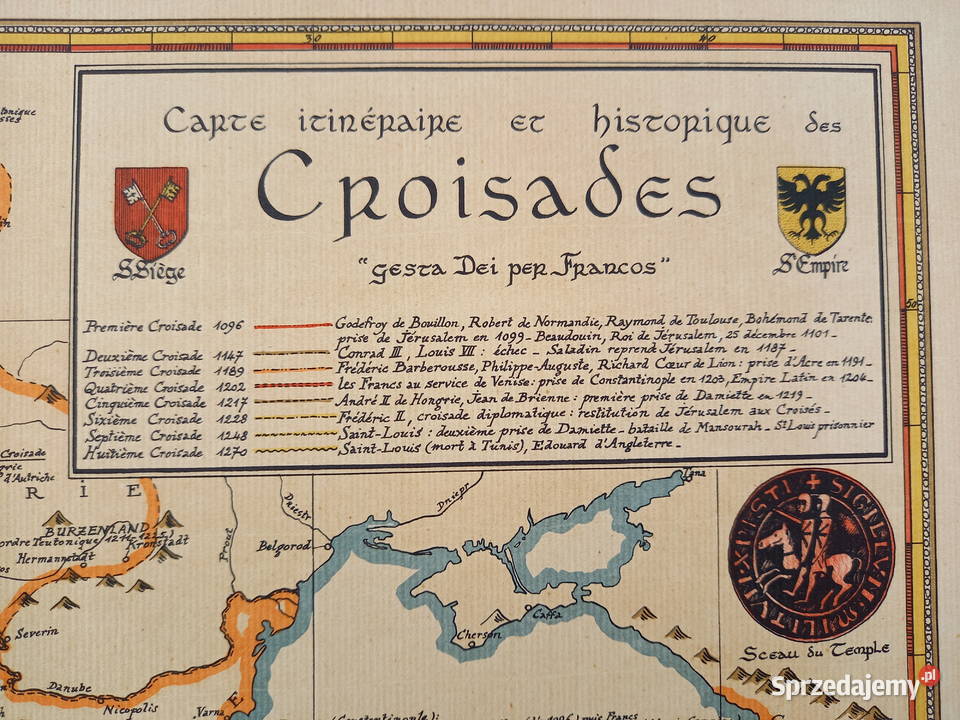 30
40
Carte itinéraire et historique des
Croisades
"Gesta Dei per Francos"
S.Siège
St Empire
50
Première Croisade 1096
Godefroy de Bouillon, Robert de Normandie, Raymond de Toulouse, Bohémond de Tarente.
prise de Jérusalem en 1099 _ Beaudouin, Roi de Jérusalem, 25 décembre 1101 _
Deuxième Croisade 1147
Conrad III, Louis VII : échec _ Saladin reprend Jérusalem en 1187 _
Troisième Croisade 1189
Fréderic Barberousse, Philippe-Auguste, Richard Cœur de Lion : prise d'Acre en 1191 _
Quatrième Croisade 1202
les Francs au service de Venise : prise de Constantinople en 1203, Empire Latin en 1204 _
Cinquième Croisade 1217
André II de Hongrie, Jean de Brienne : première prise de Damiette en 1219 _
Sixième Croisade 1228
Frédéric II, croisade diplomatique : restitution de Jérusalem aux Croisés _
Septième Croisade 1248
Saint-Louis : deuxième prise de Damiette _ bataille de Mansourah _ St Louis prisonnier
Huitième Croisade 1270
Saint-Louis (mort à Tunis), Edouard d'Angleterre _
Croisade
d'Autriche
R I E
Tana
Dniestr
Dniepr
BURZENLAND
ordre Teutonique 1211-1225
Hermannstadt
Kronstadt
Prout
Belgorod
Caffa
Cherson
Severin
Danube
Nicopolis
Varna
Sceau du Temple
Sprzedajemy.pl